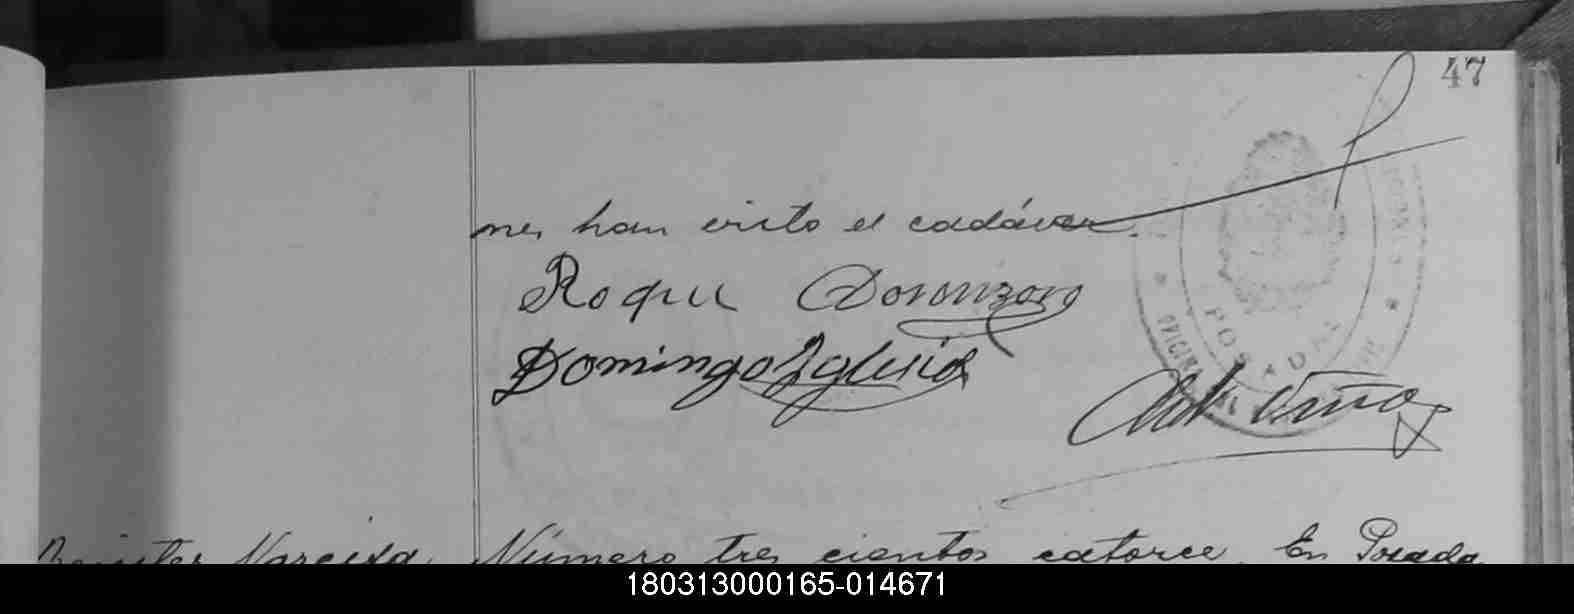 47
nes han visto el cadáver.
Roque Doronzoro
Domingo Iglesia
POSADAS
Narcisa. Número tres cientos catorce. En Posada
180313000165-014671